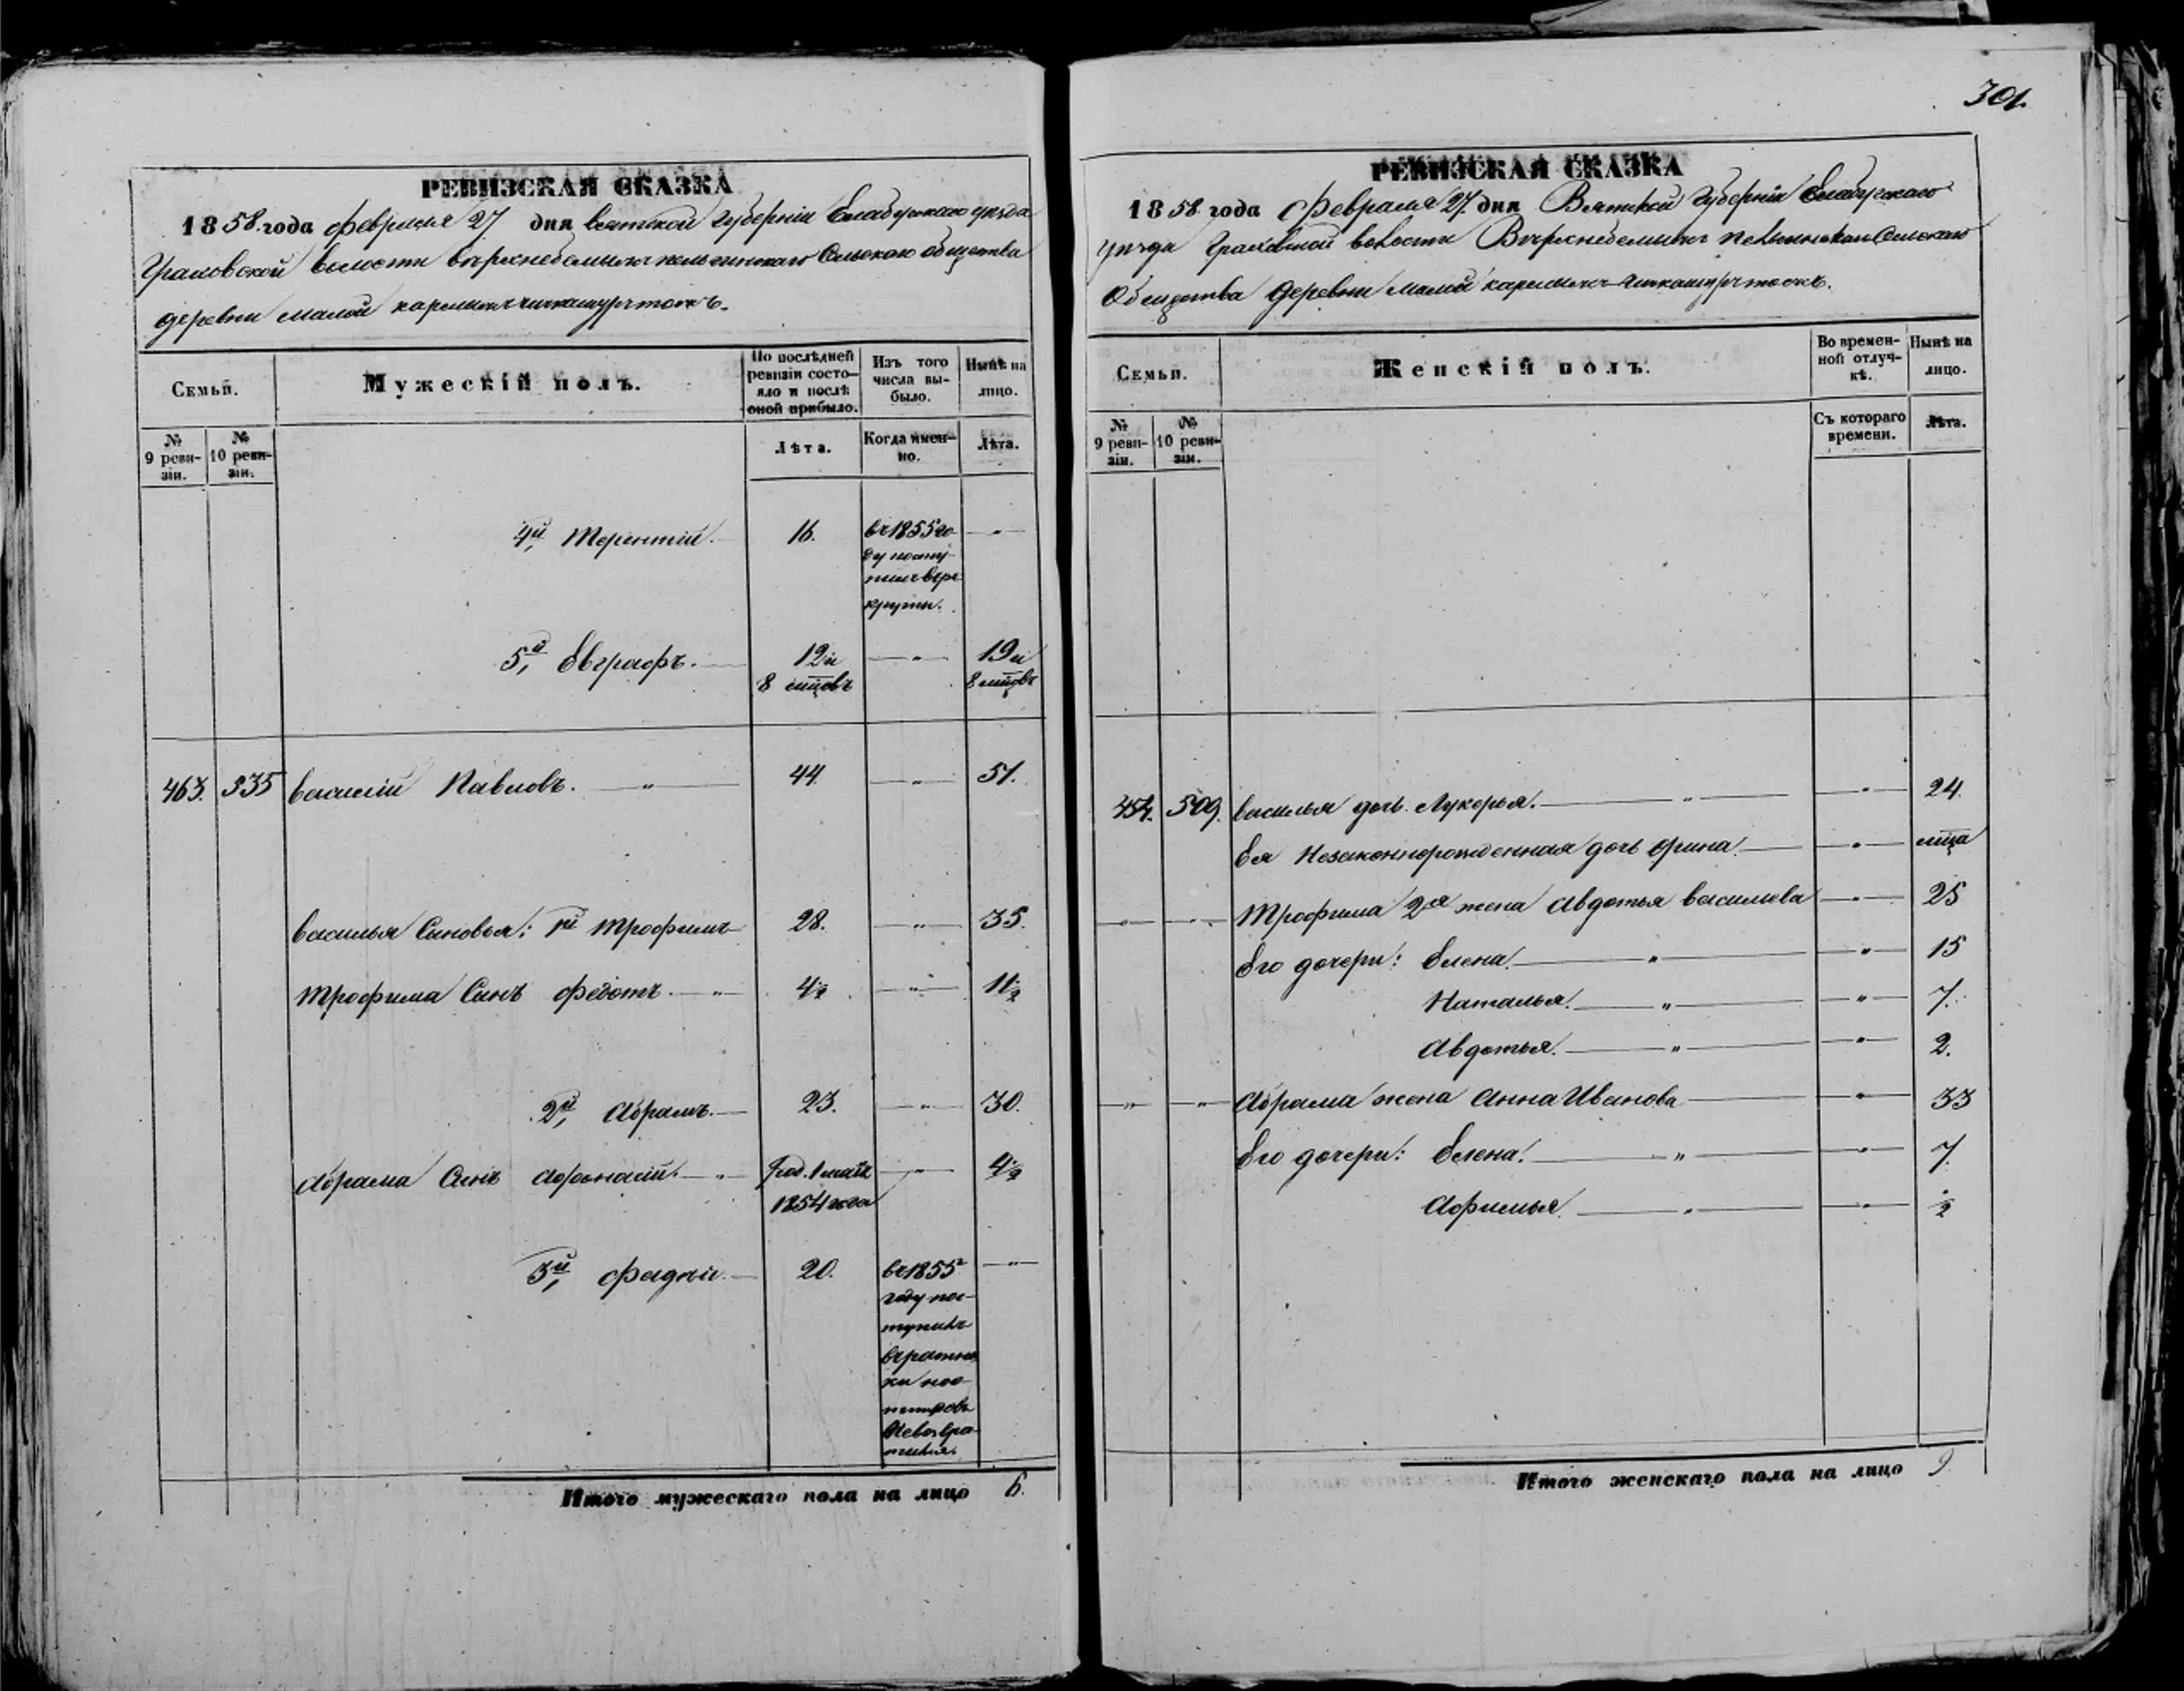 301.
РЕВИЗСКАЯ СКАЗКА
1858. года февраля 27 дня вятской губерніи Елабужскаго уезда
Граховской волости Сельскаго общества
деревни малой
Семьи.
Мужескій полъ.
По послѣдней ревизіи состо-
яло и послѣ
оной прибыло.
Изъ того
числа вы-
было.
Нынѣ на
лицо.
№
9 реви-
зіи.
№
10 реви-
зіи.
Лѣта.
Когда имен-
но.
Лѣта.
4й, Терентій. 16. въ 1855 го-
ду посту-
пилъ въ ре-
круты.
5й, Евграфъ. 12 и 19 и
8 мцовъ 8 мцовъ
463. 535 василій Павловъ. " 44. " 51.
василья Сыновья: 1й трофимъ 28. " 35.
трофима Сынъ федотъ. " 4½ " 11½
2й, Абрамъ. 23. " 30.
Абрама Сынъ Афонасій. " Род. 1 мая " 4½
1854 года
3й, 20. въ 1855 "
году пос-
тупилъ
въ ратни-
ки
невозвра-
тился.
Итого мужескаго пола на лицо 6.
РЕВИЗСКАЯ СКАЗКА
1858 года Февраля 27. дня Вятской Губерніи Елабужскаго
уезда Граховской волости Сельскаго
Общества деревни малой
Семьи.
Женскій полъ.
Во времен-
ной отлуч-
кѣ.
Нынѣ на
лицо.
№
9 реви-
зіи.
№
10 реви-
зіи.
Съ котораго
времени.
Лѣта.
454. 509. василья дочь Лукерья. " " 24.
Ея Незаконнорожденная дочь Орина. " мца
" " Трофима 2я жена Авдотья васильева " 25
Его дочери: Елена. " " 15
Наталья. " " 7.
Авдотья. " " 2.
" " Абрама жена Анна Иванова " 33
Его дочери: Елена. " " 7.
Афимья. " " ½
Итого женскаго пола на лицо 9